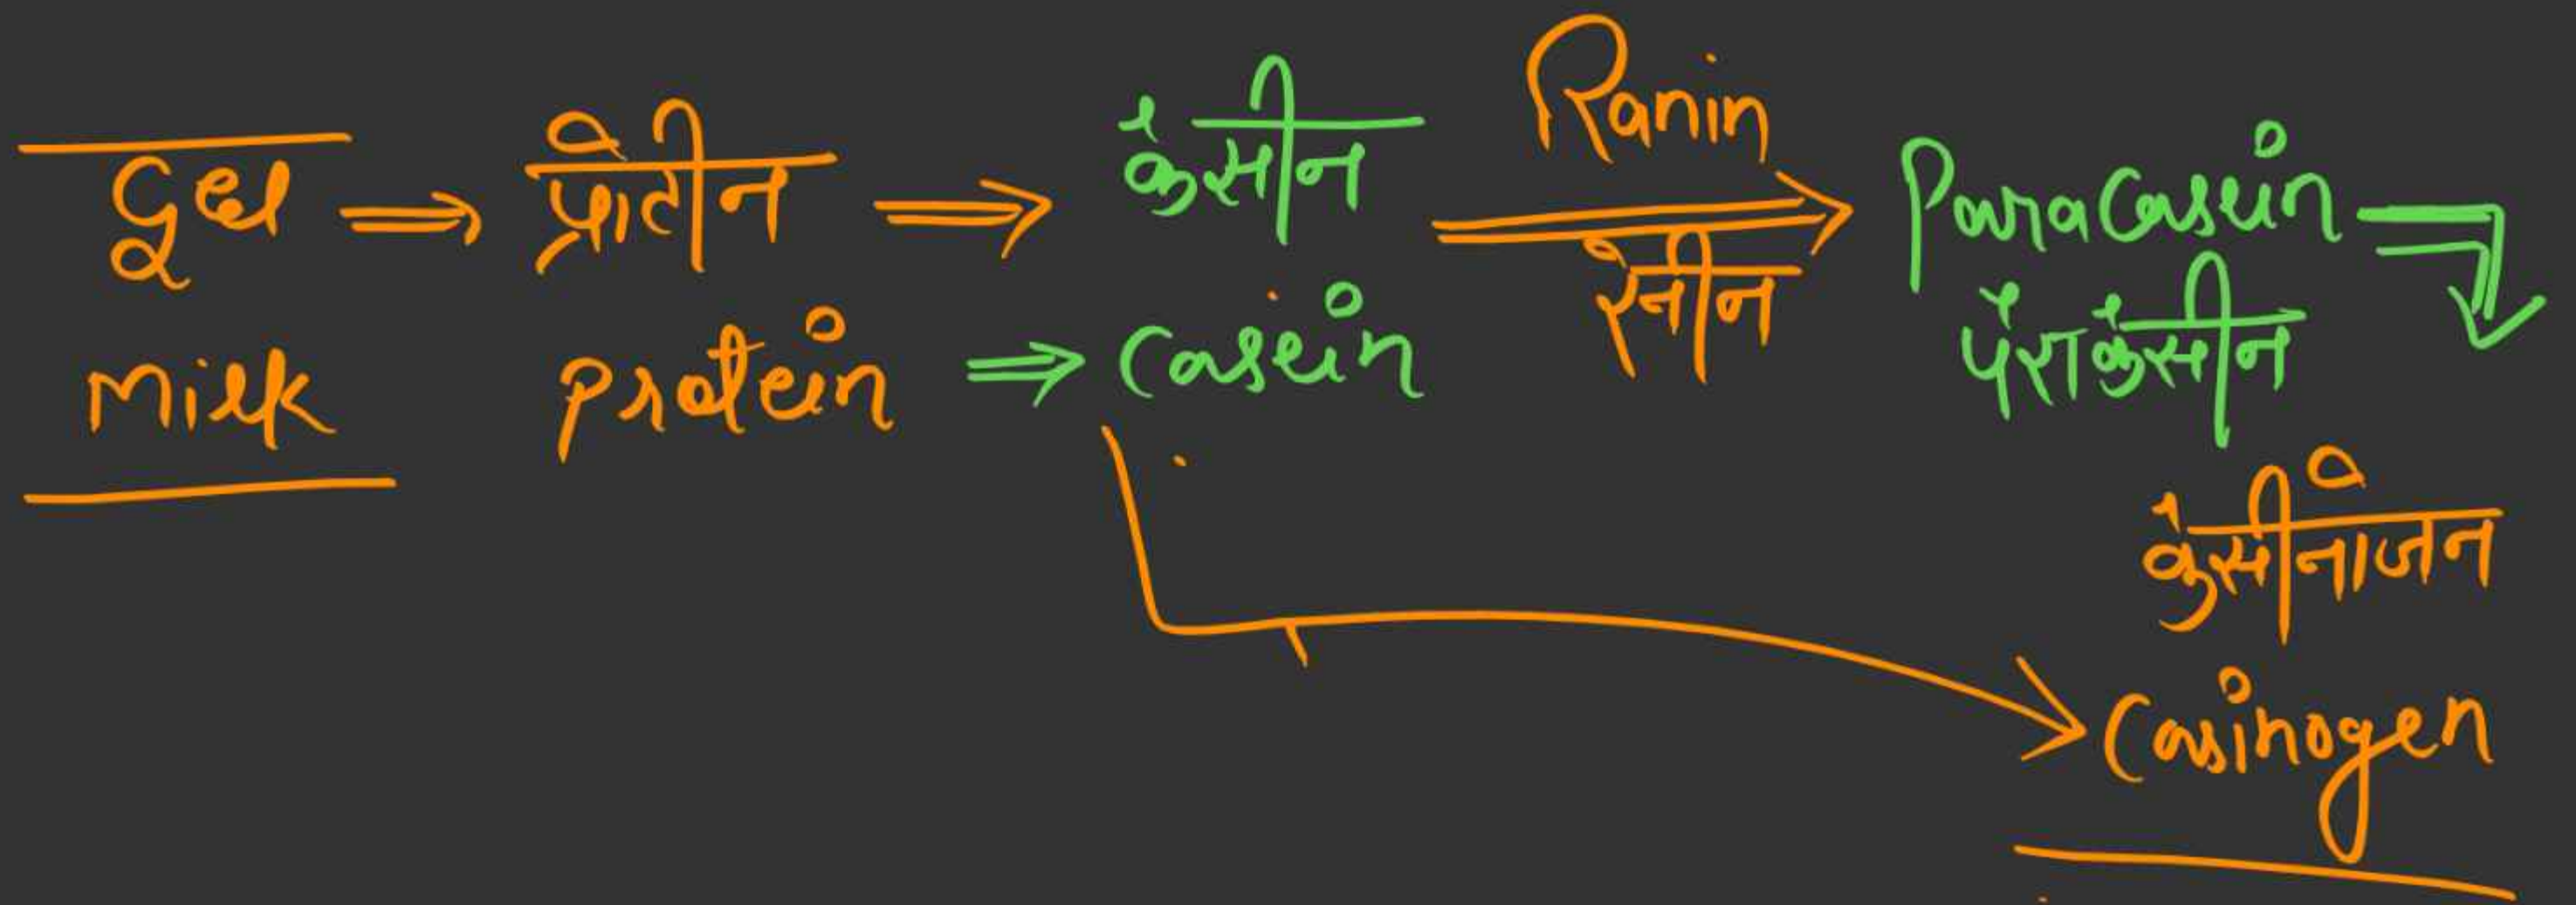 दूध ⇒ प्रोटीन ⇒ कैसीन
Ranin
रेनीन
Paracasein
पैराकैसीन
Milk protein ⇒ Casein
कैसीनोजन
Casinogen